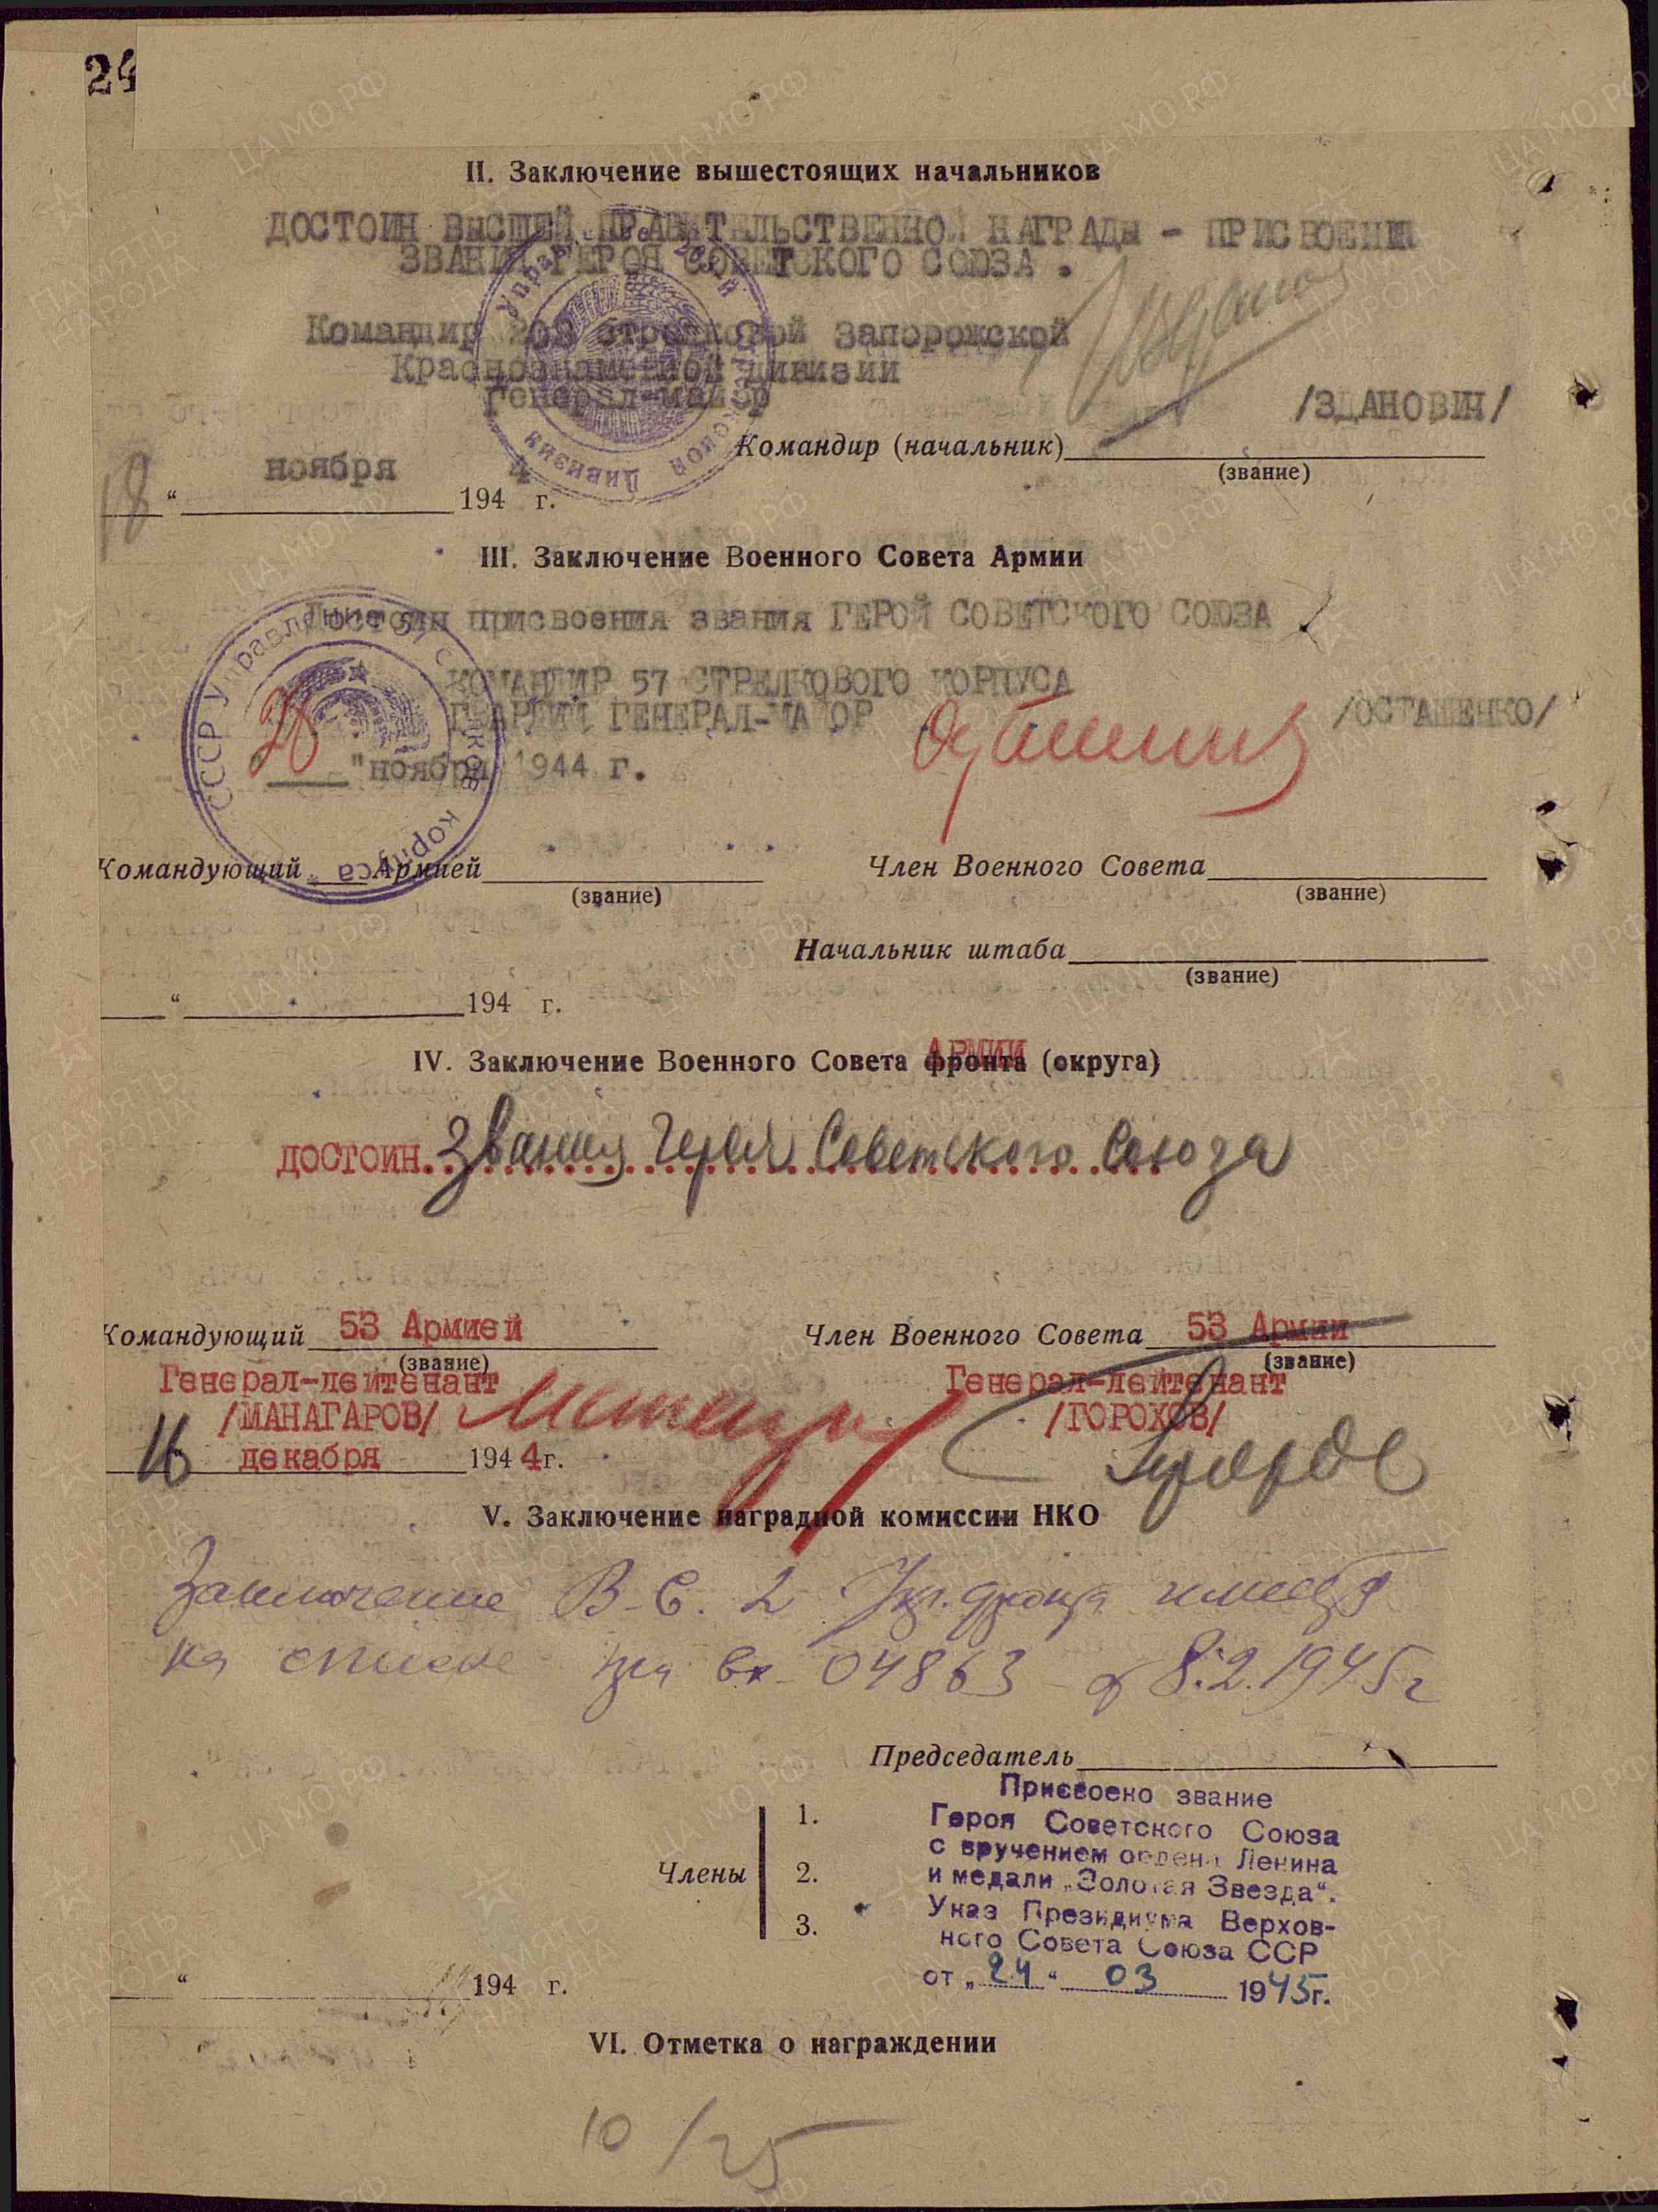 24
II. Заключение вышестоящих начальников
ДОСТОИН ВЫСШЕЙ ПРАВИТЕЛЬСТВЕННОЙ НАГРАДЫ - ПРИСВОЕНИЯ
ЗВАНИЯ ГЕРОЯ СОВЕТСКОГО СОЮЗА.
Командир 203 стрелковой Запорожской
Краснознаменной дивизии
Генерал-майор
/ЗДАНОВИЧ/
Командир (начальник)
(звание)
18 " ноября 1944 г.
III. Заключение Военного Совета Армии
Достоин присвоения звания ГЕРОЙ СОВЕТСКОГО СОЮЗА
КОМАНДИР 57 СТРЕЛКОВОГО КОРПУСА
ГВАРДИИ ГЕНЕРАЛ-МАЙОР /ОСТАШЕНКО/
"ноября 1944 г.
Командующий Армией Член Военного Совета
(звание) (звание)
Начальник штаба
(звание)
" 194 г.
АРМИИ
IV. Заключение Военного Совета фронта (округа)
ДОСТОИН звания Героя Советского Союза
Командующий 53 Армией Член Военного Совета 53 Армии
(звание) (звание)
Генерал-лейтенант Генерал-лейтенант
/МАНАГАРОВ/ /ГОРОХОВ/
16 декабря 1944г.
V. Заключение наградной комиссии НКО
Заключение В.С. 2 Укр. фронта имеется
на списке при вх 04863 от 8.2.1945г
Председатель
Присвоено звание
1. Героя Советского Союза
с вручением ордена Ленина
Члены 2. и медали „Золотая Звезда“.
3. Указ Президиума Верхов-
ного Совета Союза ССР
от „24“ 03 1945г.
" 194 г.
VI. Отметка о награждении
10/25